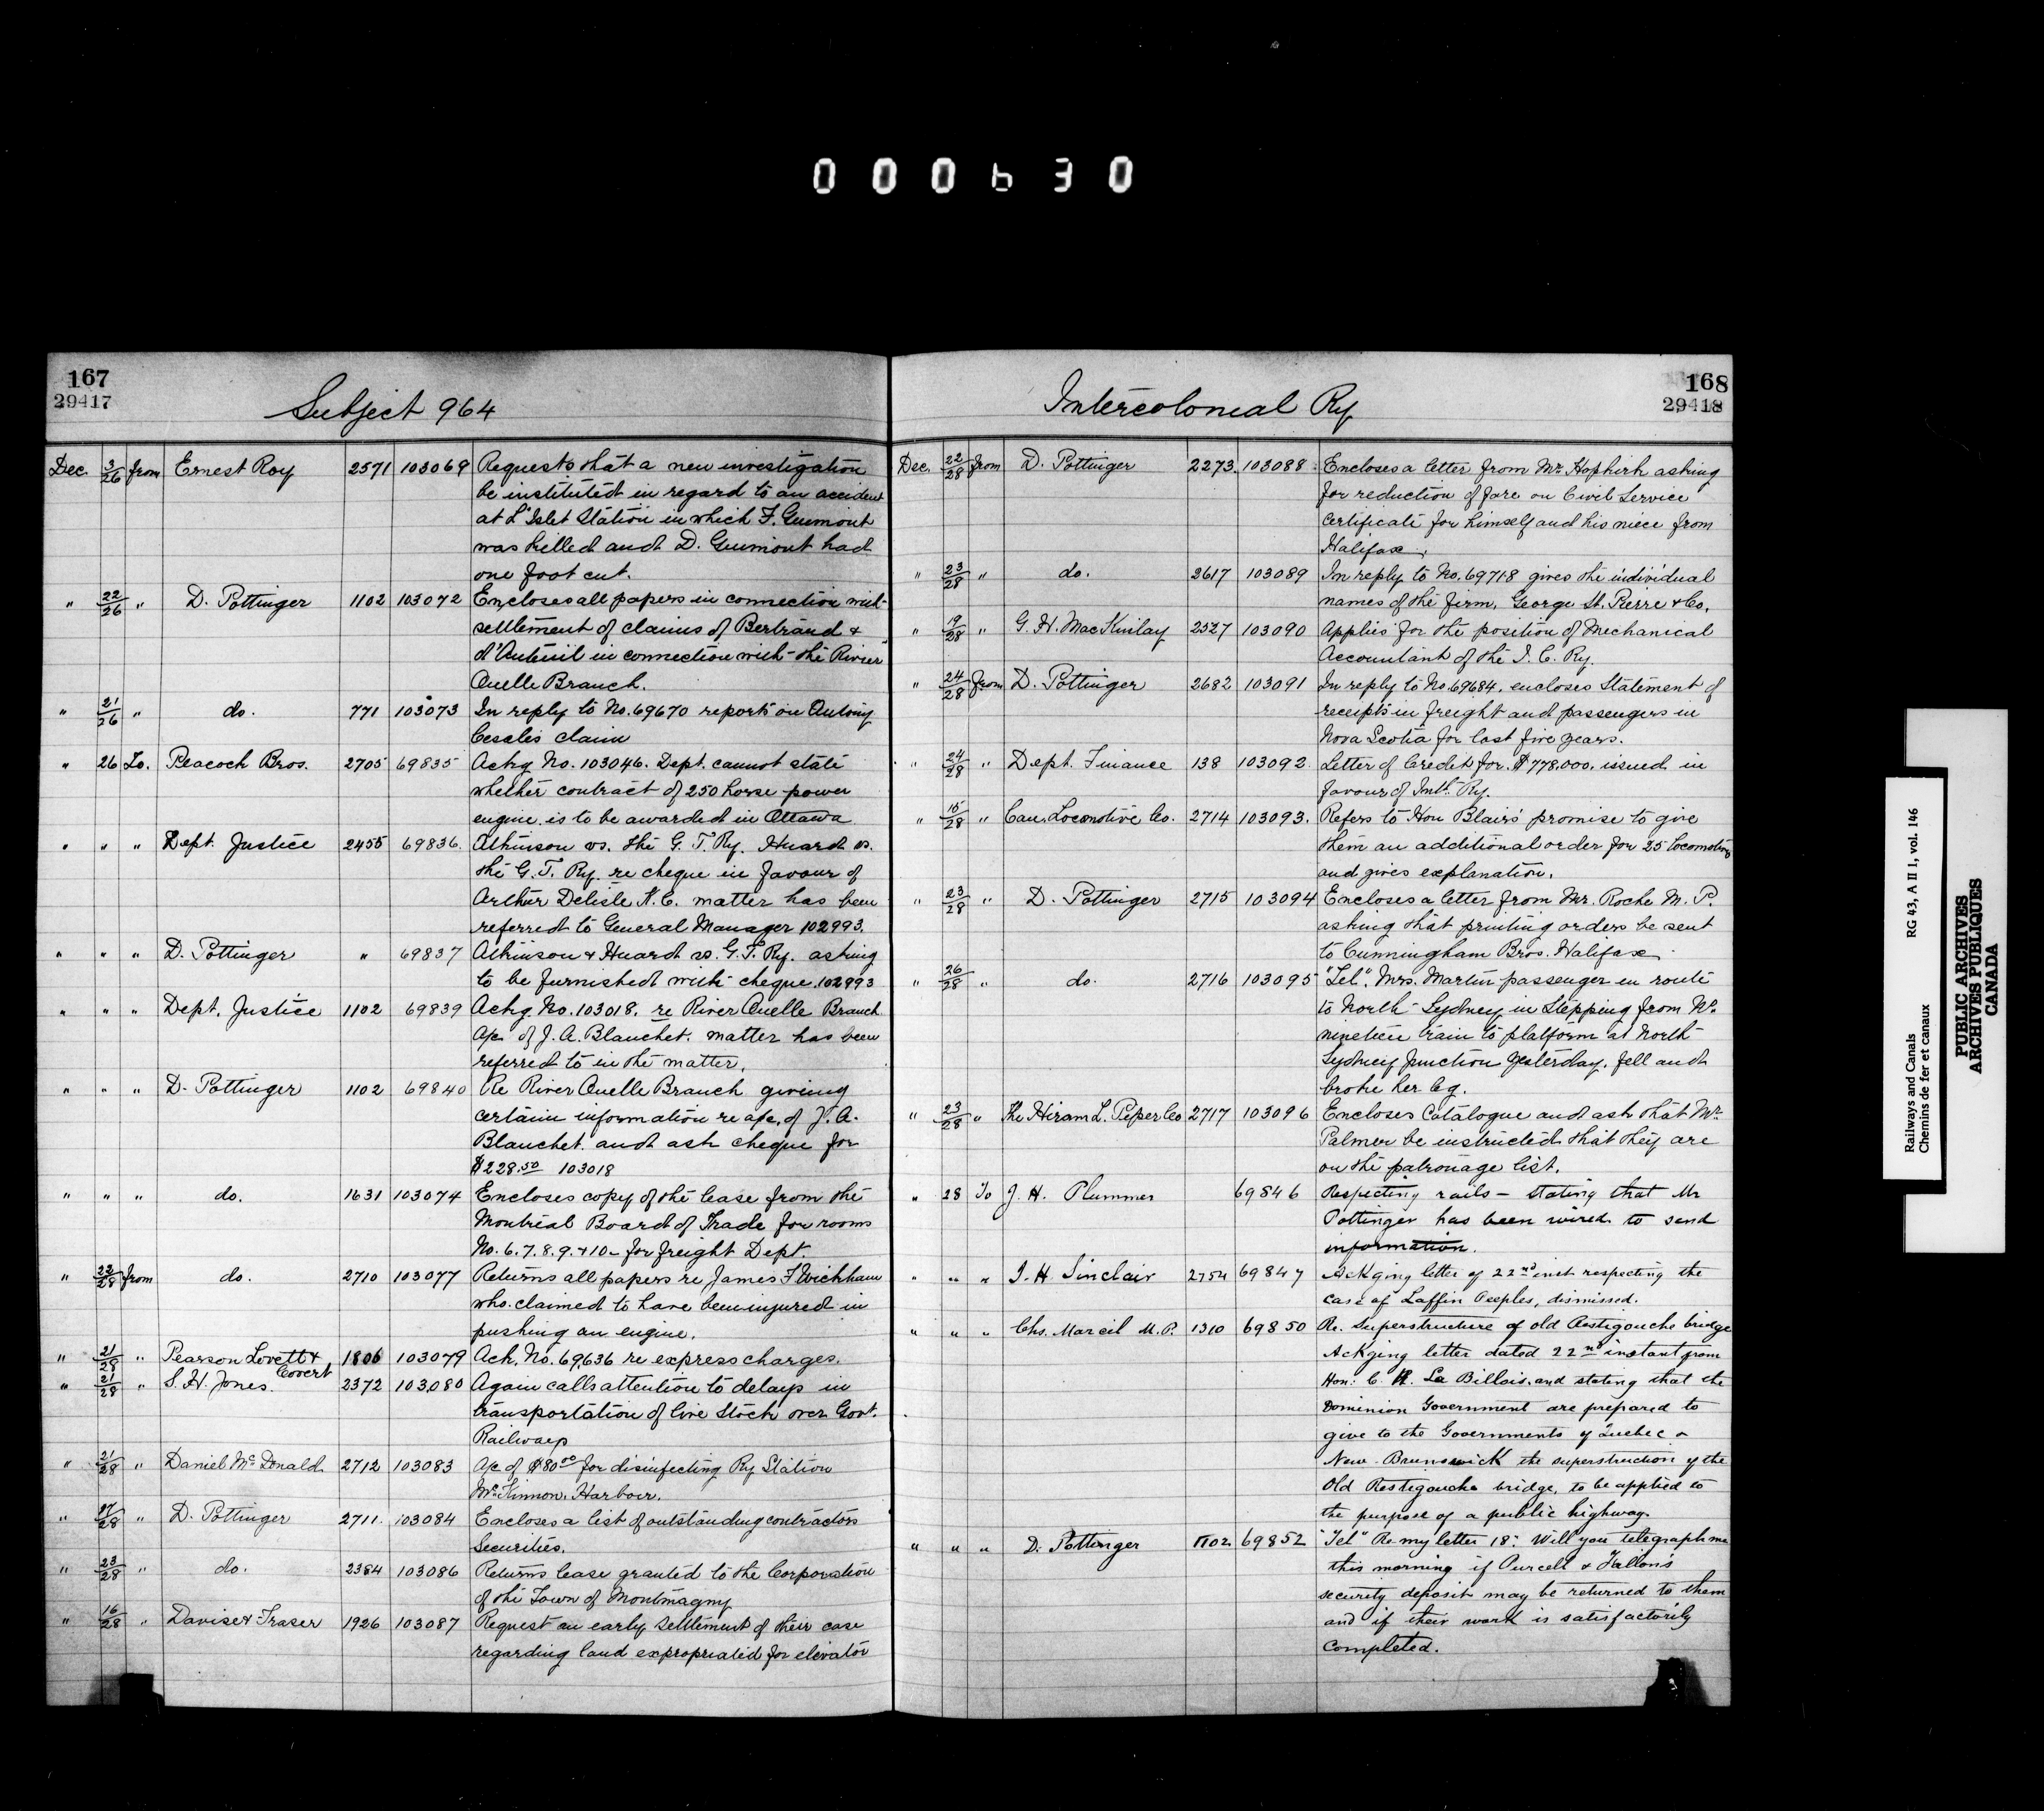 000630
167
29417
Subject 964
Dec. 3/26 from Ernest Roy 2571 103069 Requests that a new investigation
be instituted in regard to an accident
at L'Islet Station in which F. Guimont
was killed and D. Guimont had
one foot cut.
" 22/26 " D. Pottinger 1102 103072 Encloses all papers in connection with
settlement of claims of Bertrand &
d'Auteuil in connection with the River
Ouelle Branch.
" 21/26 " do. 771 103073 In reply to No. 69670 reports on Antony
Cesales claim
" 26 To. Peacock Bros. 2705 69835 Ackg No. 103046. Dept. cannot state
whether contract of 250 horse power
engine is to be awarded in Ottawa
" " " Dept. Justice 2455 69836. Atkinson vs. the G. T. Ry. Huard vs.
the G. T. Ry. re cheque in favour of
Arthur Delisle K.C. matter has been
referred to General Manager 102993.
" " " D. Pottinger " 69837 Atkinson & Huard vs. G. T. Ry. asking
to be furnished with cheque. 102993
" " " Dept. Justice 1102 69839 Ackg. No. 103018. re River Ouelle Branch
a/c of J. A. Blanchet. matter has been
referred to in the matter.
" " " D. Pottinger 1102 69840 Re River Ouelle Branch giving
certain information re a/c. of J. A.
Blanchet. and ask cheque for
$228.50 103018
" " " do. 1631 103074 Encloses copy of the lease from the
Montreal Board of Trade for rooms
No. 6. 7. 8. 9. + 10 - for freight Dept.
" 22/28 from do. 2710 103077 Returns all papers re James F Wickham
who claimed to have been injured in
pushing an engine.
" 21/28 " Pearson Lovett & Covert 1806 103079 Ack. No. 69636 re express charges.
" 21/28 " S. H. Jones. 2372 103080 Again calls attention to delays in
transportation of live Stock over Govt.
Railways
" 21/28 " Daniel McDonald 2712 103083 a/c of $80.00 for disinfecting Ry Station
McKinnon, Harbour.
" 27/28 " D. Pottinger 2711. 103084 Encloses a list of outstanding contractors
Securities.
" 23/28 " do. 2384 103086 Returns lease granted to the Corporation
of the Town of Montmagny
" 16/28 " Davis & Fraser 1926 103087 Request an early settlement of their case
regarding land expropriated for elevator
168
29418
Intercolonial Ry
Dec. 22/28 from D. Pottinger 2273. 103088 Encloses a letter from Mr. Hopkirk asking
for reduction of fare on Civil Service
certificate for himself and his niece from
Halifax.
" 23/28 " do. 2617 103089 In reply to No. 69718 gives the individual
names of the firm, George St. Pierre & Co.
" 19/28 " G. H. MacKinlay 2527 103090 Applies for the position of Mechanical
Accountant of the I. C. Ry.
" 24/28 from D. Pottinger 2682 103091 In reply to No. 69684. encloses Statement of
receipts in freight and passengers in
Nova Scotia for last five years.
" 24/28 " Dept. Finance 138 103092 Letter of Credit for $778,000. issued in
favour of Intl. Ry.
" 15/28 " Can. Locomotive Co. 2714 103093. Refers to Hon Blair's promise to give
them an additional order for 25 locomotives
and gives explanation.
" 23/28 " D. Pottinger 2715 103094 Encloses a letter from Mr. Roche M. P.
asking that printing orders be sent
to Cunningham Bros. Halifax
" 26/28 " do. 2716 103095 "Tel". Mrs. Martin passenger en route
to North Sydney in Stepping from No.
nineteen train to platform at North
Sydney Junction yesterday. fell and
broke her leg.
" 23/28 " The Hiram L. Piper Co 2717 103096 Encloses Catalogue and ask that Mr.
Palmer be instructed that they are
on the patronage list.
" 28 To J. H. Plummer 69846 Respecting rails - stating that Mr
Pottinger has been wired to send
information.
" " " J. H. Sinclair 2754 69847 Ackging letter of 22nd inst respecting the
case of Laffin Peeples, dismissed.
" " " Chs. Marcil M. P. 1310 69850 Re. Superstructure of old Restigouche bridge
Ackging letter dated 22nd instant from
Hon: C. H. La Billois, and stating that the
Dominion Government are prepared to
give to the Governments of Quebec &
New Brunswick the superstruction of the
Old Restigouche bridge, to be applied to
the purpose of a public highway.
" " " D. Pottinger 1102 69852 "Tel" Re my letter 18: Will you telegraph me
this morning if Purcell & Fallon's
security deposit may be returned to them
and if their work is satisfactorily
completed.
Railways and Canals RG 43, A II 1, vol. 146
Chemins de fer et canaux
PUBLIC ARCHIVES
ARCHIVES PUBLIQUES
CANADA